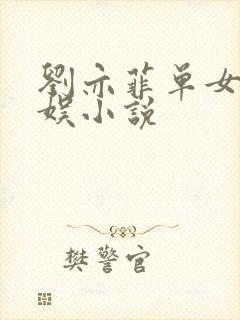 劉亦菲单女
娱小説
樊警官